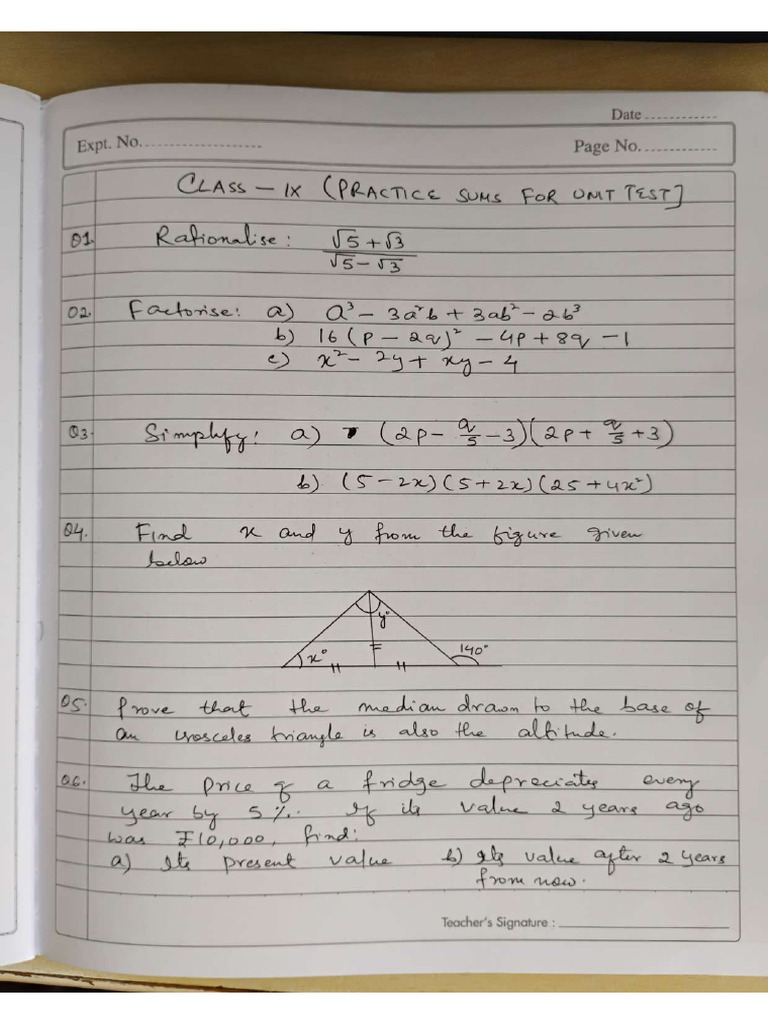 Date ............
Expt. No. ........................
Page No. ............
CLASS – IX (PRACTICE SUMS FOR UNIT TEST]
Q1. Rationalise: (√5 + √3)/(√5 – √3)
Q2. Factorise: a) a³ – 3a²b + 3ab² – 2b³
b) 16(p – 2q)² – 4p + 8q – 1
c) x² – 2y + xy – 4
Q3. Simplify: a) (2p – q/5 – 3)(2p + q/5 + 3)
b) (5 – 2x)(5 + 2x)(25 + 4x²)
Q4. Find x and y from the figure given
below
y°
x° 140°
Q5. Prove that the median drawn to the base of
an isosceles triangle is also the altitude.
Q6. The price of a fridge depreciates every
year by 5%. If its value 2 years ago
was ₹10,000, find:
a) Its present value b) Its value after 2 years
from now.
Teacher's Signature : ____________